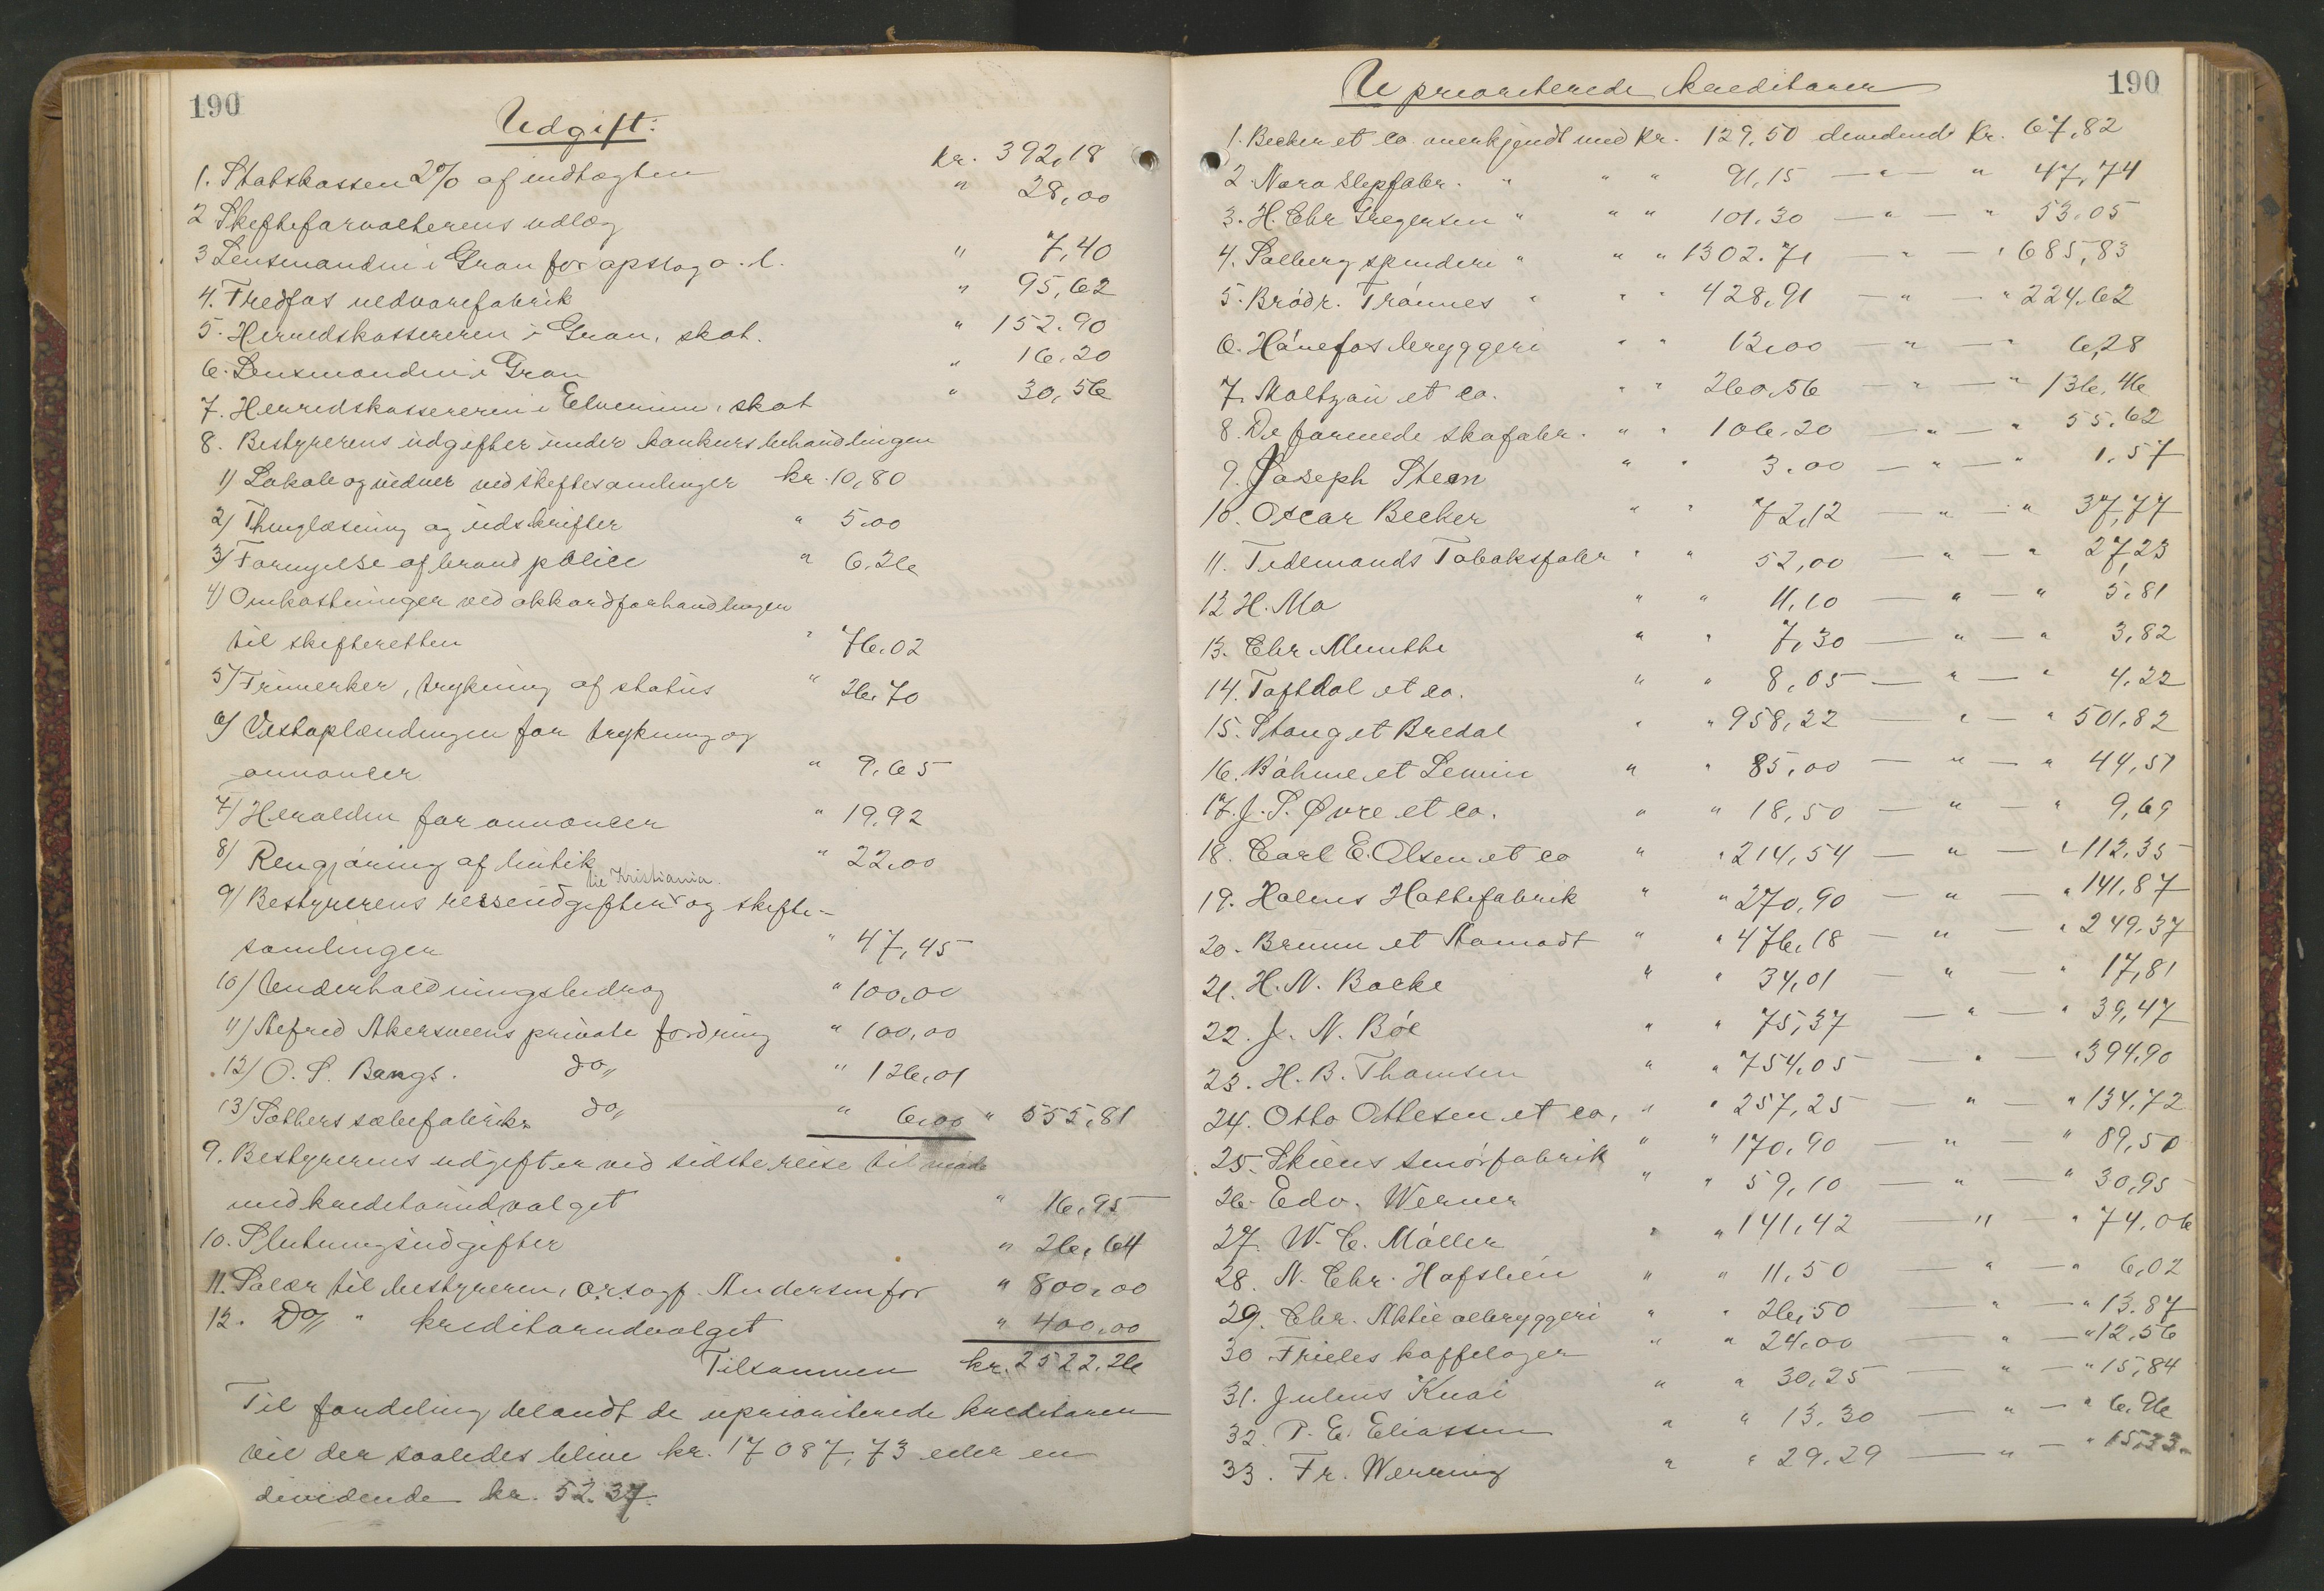 190
Udgift:
1. Statskassen 2% af indtægten kr. 392,18
2 Skifteforvalterens udlæg " 28,00
3 Lensmanden i Gran for opslag o. l. " 7,40
4. Tredfos uldvarefabrik " 95,62
5. Herredskassereren i Gran, skat. " 152.90
6. Lensmanden i Gran " 16.20
7. Herredskassereren i Elverum, skat " 30,56
8. Bestyrerens udgifter under konkursbehandlingen
1) Lokale og vidner ved skiftesamlinger kr. 10,80
2) Thinglæsning og udskrifter " 5.00
3) Fornyelse af brand police " 6.26
4) Omkostninger ved akkordforhandlingen
til skifteretten " 76.02
5) Frimerker, trykning af status " 26.70
6) Vestoplændingen for trykning og
annoncer " 9.65
7) Heralden for annoncer " 19.92
8) Rengjöring af butik " 22.00
9) Bestyrerens reiseudgifter til Kristiania og skifte-
samlinger " 47,45
10) Underholdningsbidrag " 100,00
11) Alfred Akersveens private fordring " 100,00
12) O. S. Bangs. do,, " 126,01
13) Sæthers sæbefabriks do,, " 6,00 " 555,81
9. Bestyrerens udgifter ved sidste reise til möde
med kreditorudvalget " 16,95
10. Slutningsudgifter " 26,64
11. Salær til bestyreren, o.r.sagf. Andersen for " 800,00
12. Do,, " kreditorudvalget " 400,00
Tilsammen kr. 2522.26
Til fordeling blandt de uprioriterede kreditorer
vil der saaledes blive kr. 17087,73 eller en
dividende kr. 52.37.
190
Uprioriterede kreditorer
1. Becker et co. anerkjendt med kr. 129,50 dividende kr. 67,82
2. Nora Slipfabr. " " " 91,15 — " — " 47,74
3. H. Chr Gregersen " " " 101.30 — " — " 53.05
4. Solberg spinderi " " " 1302.71 — " — " 685,83
5. Brödr. Trönnes " " " 428,91 — " — " 224.62
6. Hönefos bryggeri " " 12,00 — " — " 6,28
7. Moltzau et co. " " 260.56 — " — " 136.46
8. De forenede skofabr. " " 106.20 — " — " 55.62
9. Joseph Stern " " 3.00 — " — " 1.57
10. Oscar Becker " " 72,12 — " — " 37,77
11. Tidemands Tobaksfabr " " 52,00 — " — " 27,23
12 H. Mo " " 11,10 — " — " 5,81
13. Chr. Munthe " " 7,30 — " — " 3,82
14. Toftdal et co. " " 8,05 — " — " 4.22
15. Stang et Bredal " " 958,22 — " — " 501,82
16. Böhme et Lewin " " 85,00 — " — " 44,51
17. J. S. Øvre et co. " " 18,50 — " — " 9,69
18. Carl E. Olsen et co " " 214,54 — " — " 112,35
19. Holms Hattefabrik " " 270,90 — " — " 141,87
20. Bruun et Aamodt " " 476,18 — " — " 249.37
21. H. N. Backe " " 34,01 — " — " 17,81
22. J. N. Böe " " 75,37 — " — " 39,47
23. H. B. Thomsen " " 754.05 — " — " 394,90
24. Otto Ottesen et co. " " 257,25 — " — " 134.72
25. Skiens smörfabrik " " 170,90 — " — " 89,50
26. Edv. Werner " " 59,10 — " — " 30,95
27. W. C. Möller " " 141,42 — " — " 74,06
28. N. Chr. Hafslien " " 11,50 — " — " 6,02
29. Chr. Aktie ølbryggeri " " 26,50 — " — " 13.87
30. Frieles kaffelager " " 24.00 — " — " 12,56
31. Julius Knai " " 30,25 — " — " 15,84
32. P. E. Eliassen " " 13.30 — " — " 6.96
33. Fr. Werring " " 29.29 — " — " 15,33